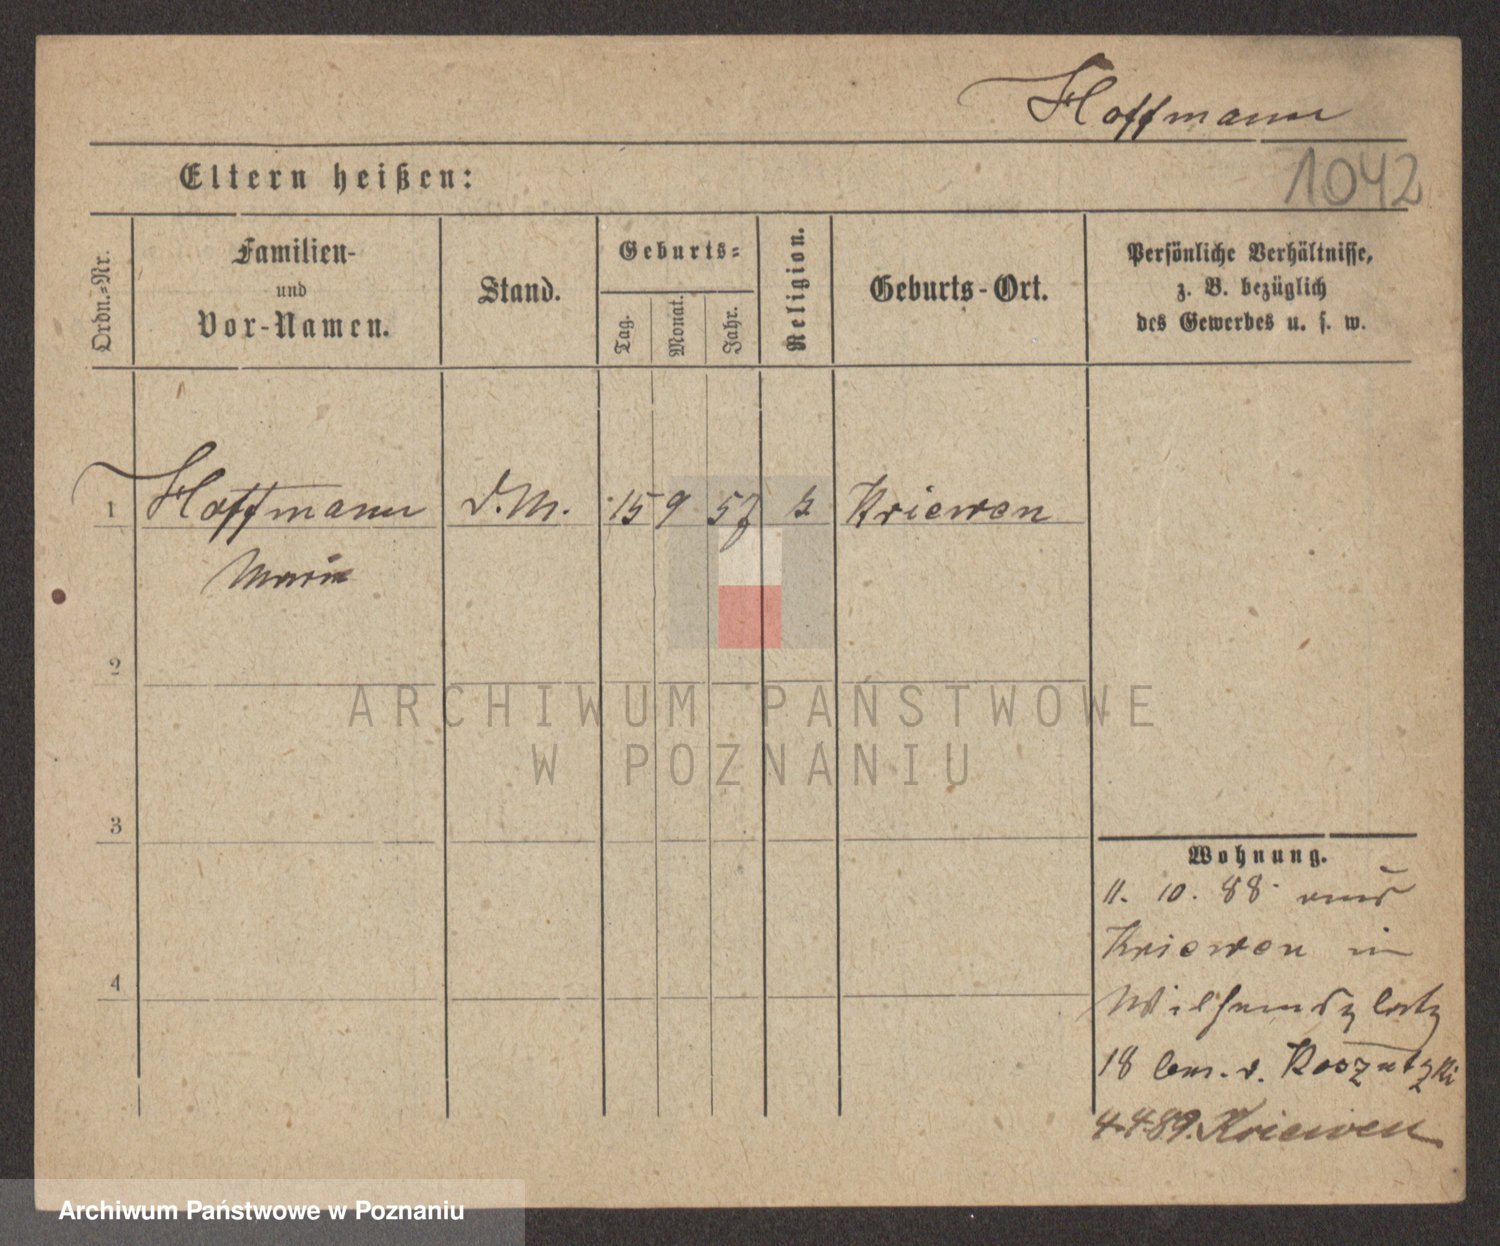 Hoffmann
1042
Eltern heißen:
Ordn.-Nr.
Familien-
und
Vor-Namen.
Stand.
Geburts-
Tag.
Monat.
Jahr.
Religion.
Geburts-Ort.
Persönliche Verhältnisse,
z. B. bezüglich
des Gewerbes u. s. w.
1 Hoffmann D.M. 15 9 57 k Kriewen
Marie
2
ARCHIWUM PAŃSTWOWE
W POZNANIU
3
Wohnung.
11. 10. 88 aus
Kriewen in
Wilhemspl
18
4
4.4.89. Kriewen
Archiwum Państwowe w Poznaniu